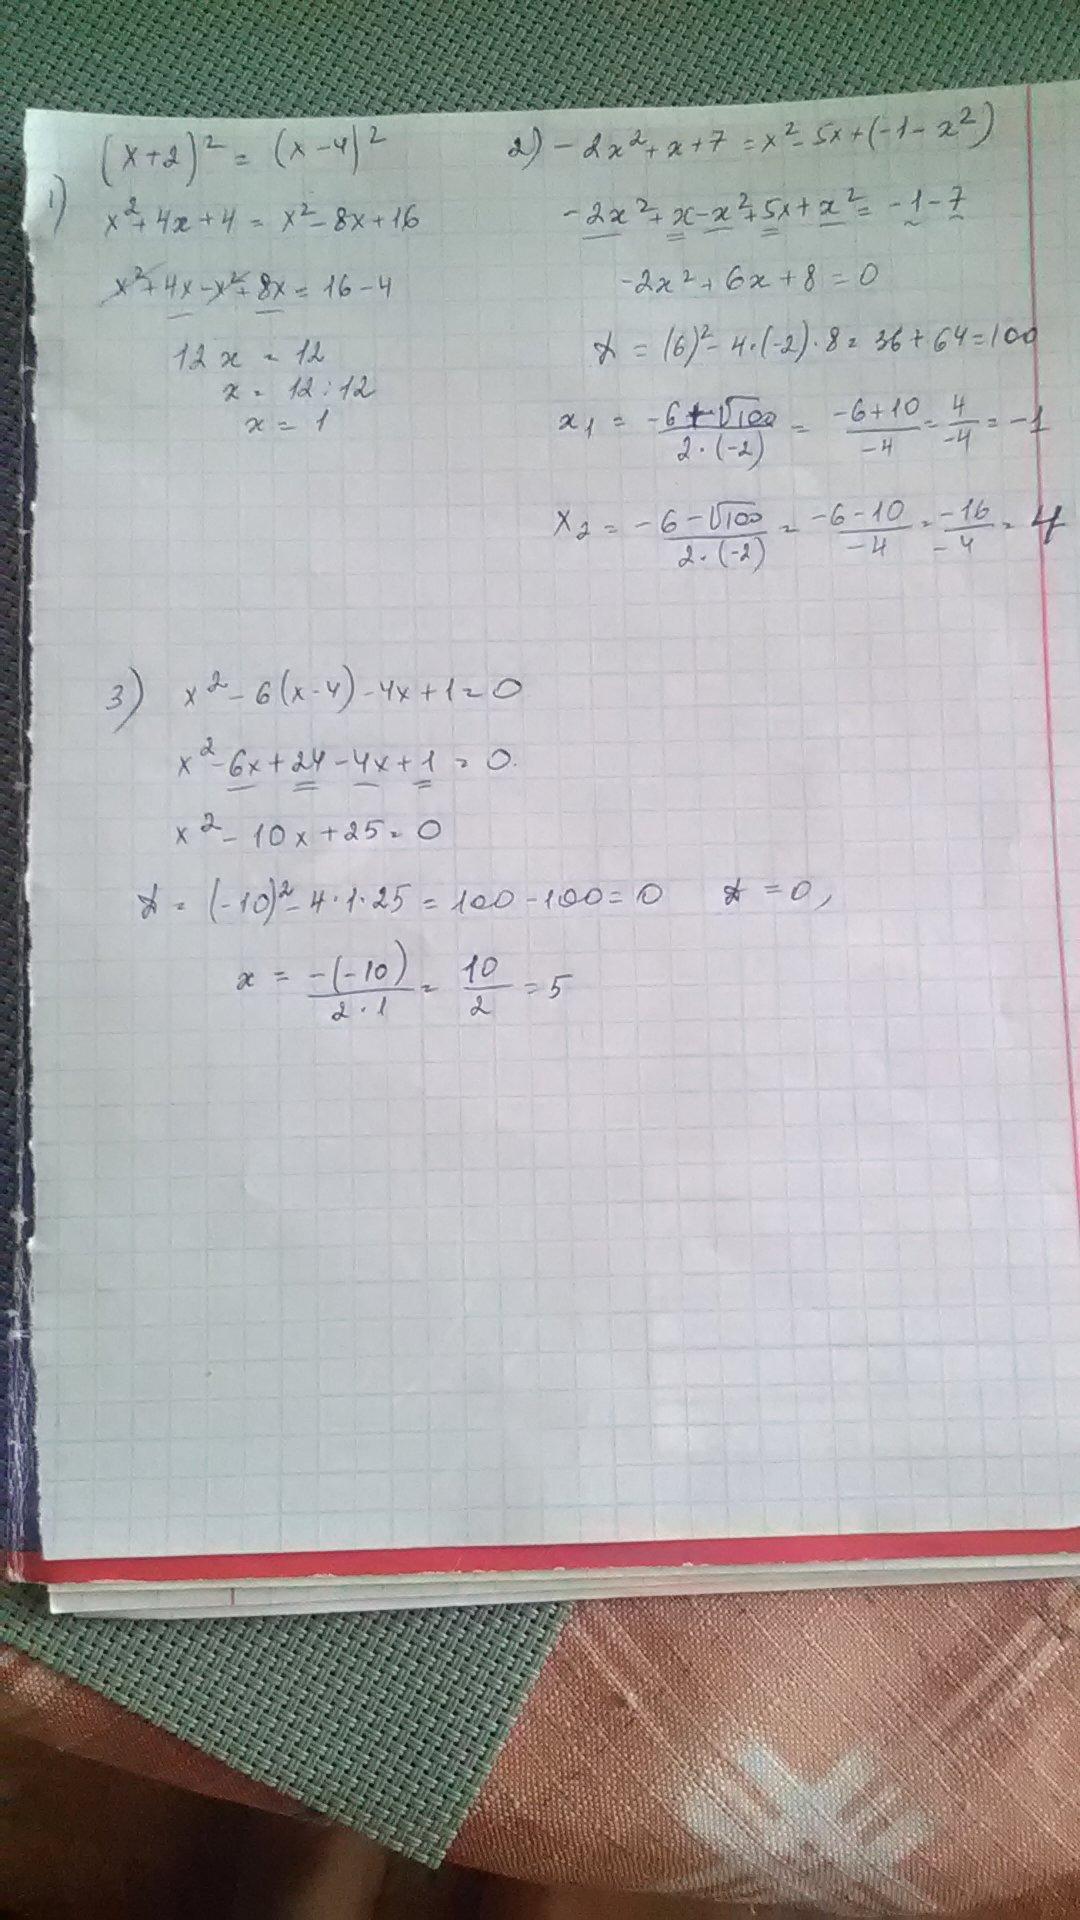 1) (x+2)² = (x-4)²
x²+4x+4 = x²-8x+16
x²+4x-x²+8x = 16-4
12x = 12
x = 12:12
x = 1
2) -2x²+x+7 = x²-5x+(-1-x²)
-2x²+x-x²+5x+x² = -1-7
-2x²+6x+8=0
D = (6)²-4·(-2)·8 = 36+64=100
x₁ = (-6+√100)/(2·(-2)) = (-6+10)/(-4) = 4/(-4) = -1
x₂ = (-6-√100)/(2·(-2)) = (-6-10)/(-4) = (-16)/(-4) = 4
3) x²-6(x-4)-4x+1=0
x²-6x+24-4x+1=0.
x²-10x+25=0
D = (-10)²-4·1·25 = 100-100=0 D=0,
x = (-(-10))/(2·1) = 10/2 = 5